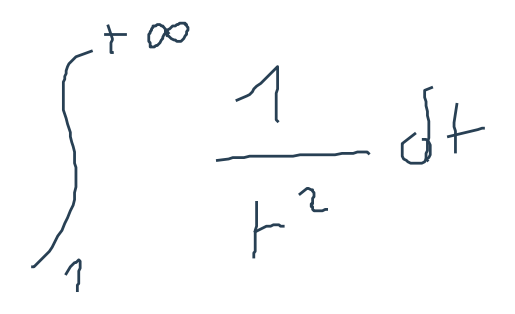 ∫₁^{+∞} 1/t² dt